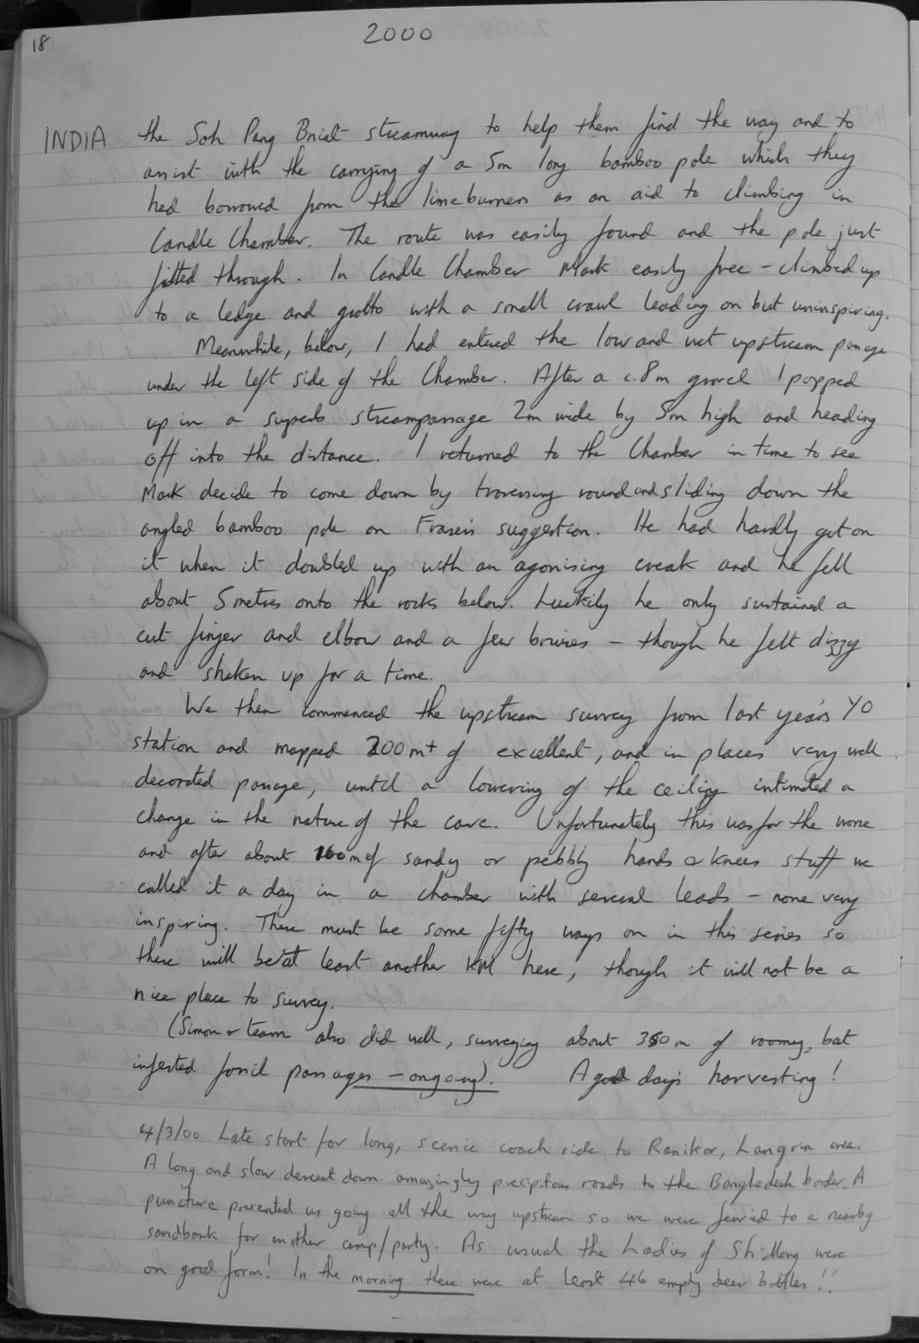 18
2000
INDIA the Soh Pang Bniat streamway to help them find the way and to
assist with the carrying of a 5m long bamboo pole which they
had borrowed from the limeburners as an aid to climbing in
Candle Chamber. The route was easily found and the pole just
fitted through. In Candle Chamber Mark easily free-climbed up
to a ledge and grotto with a small crawl leading on but uninspiring.
Meanwhile, below, I had entered the low and wet upstream passage
under the left side of the Chamber. After a c.8m grovel I popped
up in a superb streampassage 2m wide by 5m high and heading
off into the distance. I returned to the Chamber in time to see
Mark decide to come down by traversing round and sliding down the
angled bamboo pole on Fraser's suggestion. He had hardly got on
it when it doubled up with an agonising creak and he fell
about 5 metres onto the rocks below. Luckily he only sustained a
cut finger and elbow and a few bruises - though he felt dizzy
and shaken up for a time.
We then commenced the upstream survey from last year's YO
station and mapped 200m+ of excellent, and in places very well
decorated passage, until a lowering of the ceiling intimated a
change in the nature of the cave. Unfortunately this was for the worse
and after about 100m of sandy or pebbly hands & knees stuff we
called it a day in a chamber with several leads - none very
inspiring. There must be some fifty ways on in this series so
there will be at least another KM here, though it will not be a
nice place to survey.
(Simon & team also did well, surveying about 350m of roomy, bat
infested fossil passages - ongoing). A good day's harvesting!
4/3/00 Late start for long, scenic coach ride to Ranikor, Langrin area.
A long and slow descent down amazingly precipitous roads to the Bangladesh border. A
puncture prevented us going all the way upstream so we were ferried to a nearby
sandbank for another camp/party. As usual the Ladies of Shillong were
on good form! In the morning there were at least 46 empty beer bottles!!